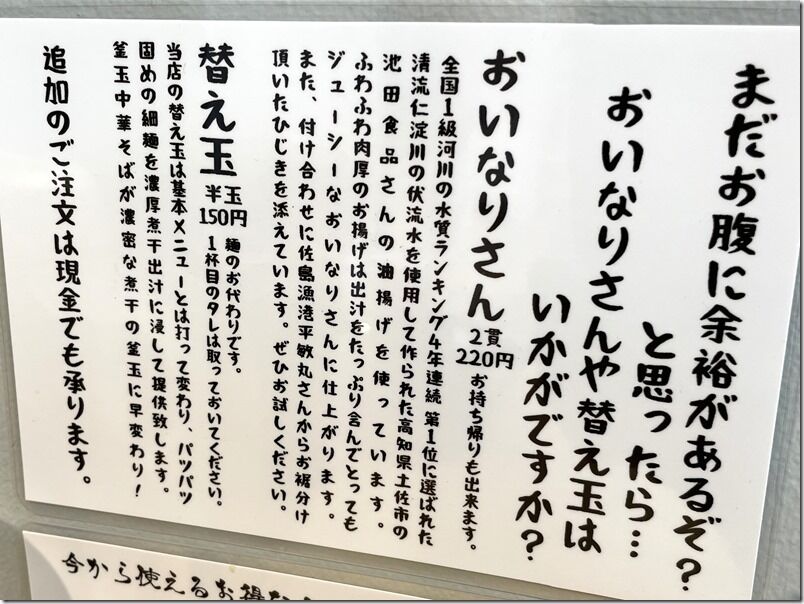 まだお腹に余裕があるぞ?
と思ったら…
おいなりさんや替え玉は
いかがですか?
おいなりさん 2貫 220円 お持ち帰りも出来ます。
全国1級河川の水質ランキング4年連続 第1位に選ばれた
清流仁淀川の伏流水を使用して作られた高知県土佐市の
池田食品さんの油揚げを使っています。
ふわふわ肉厚のお揚げは出汁をたっぷり含んでとっても
ジューシーなおいなりさんに仕上がります。
また、付け合わせに佐島漁港平敏丸さんからお裾分け
頂いたひじきを添えています。ぜひお試しください。
替え玉 半玉 150円 麺のお代わりです。
1杯目のタレは取っておいてください。
当店の替え玉は基本メニューとは打って変わり、パツパツ
固めの細麺を濃厚煮干出汁に浸して提供致します。
釜玉中華そばが濃密な煮干の釜玉に早変わり!
追加のご注文は現金でも承ります。
今から使えるお得な